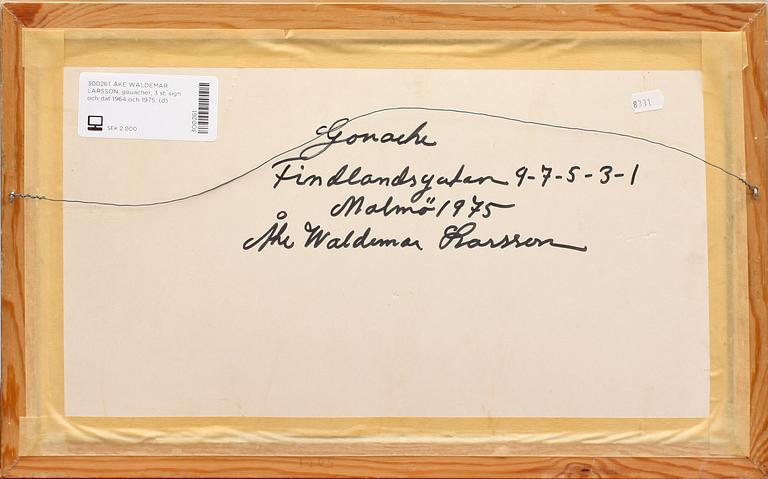 300261. ÅKE WALDEMAR
LARSSON, gouacher, 3 st, sign
och dat 1964 och 1975. (d)
SEK 2 000
300261
8331
Gouache
Findlandsgatan 9-7-5-3-1
Malmö 1975
Åke Waldemar Larsson